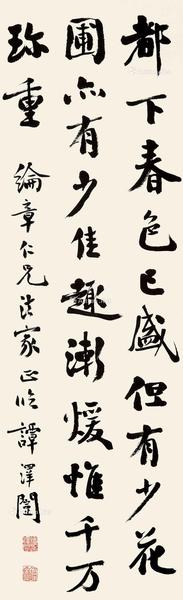 都下春色已盛但有少花
圃亦有少佳趣漸煖惟千万
珎重
綸章仁兄法家正临 譚澤闓